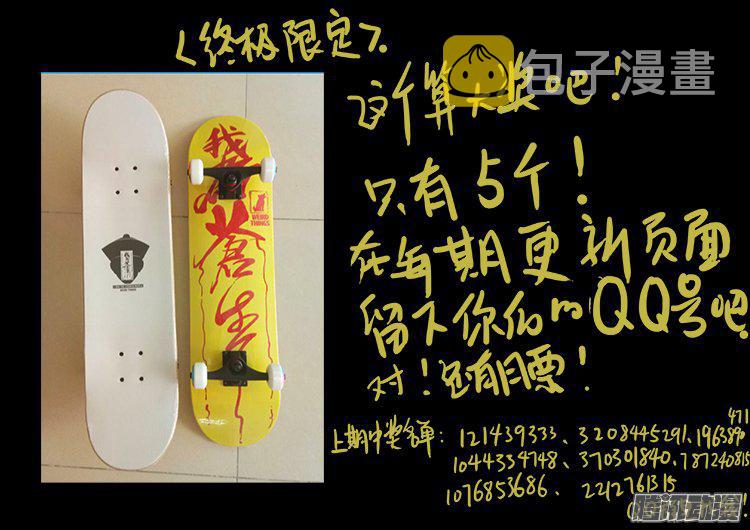 <终极限定>.
包子漫畫
这个算大奖吧！
只有5个！
在每期更新页面
留下你们的QQ号吧
对！还有月票！
我
蒼
生
WEIRD
THINGS
上期中奖名单：121439333、3208445291、1963890
471
1044334748、370301840、787240815
1076853686、2242761315
腾讯动漫